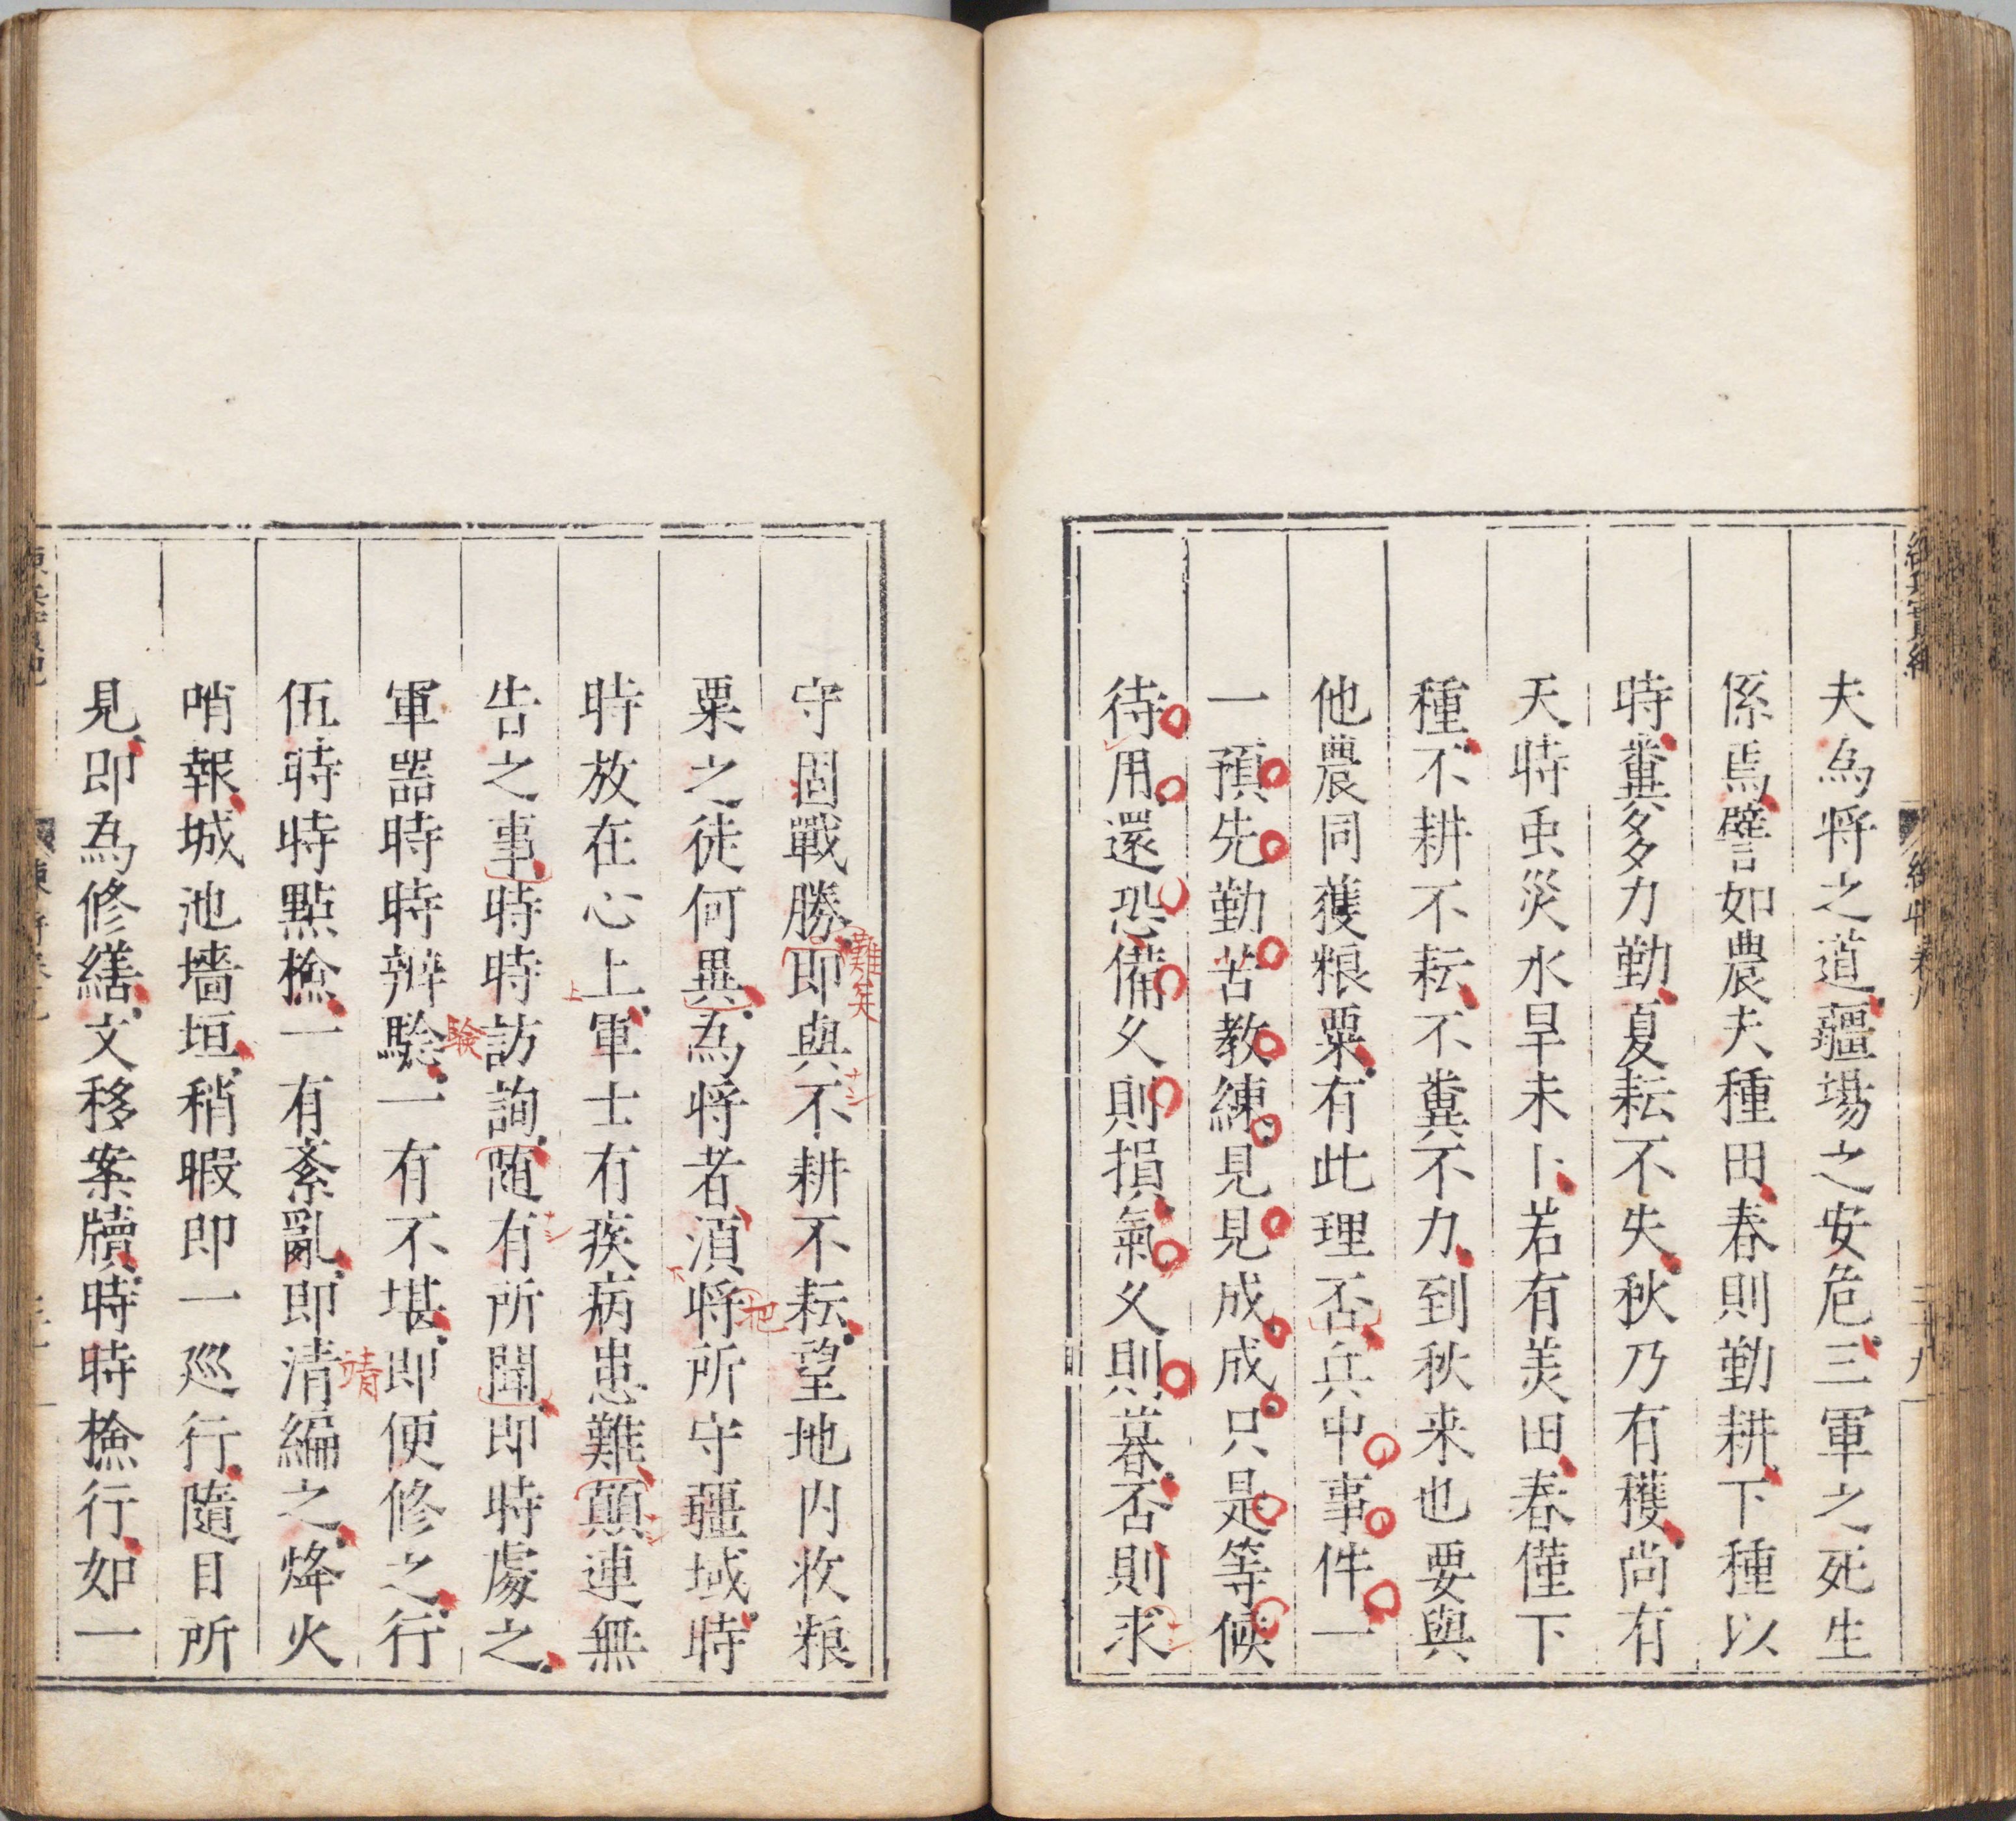 夫為将之道疆場之安危三軍之死生
係焉譬如農夫種田春則勤耕下種以
時糞多力勤夏耘不失秋乃有穫尚有
天時虫災水旱未卜若有美田春僅下
種不耕不耘不糞不力到秋来也要與
他農同獲粮粟有此理否兵中事件一
一預先勤苦教練見見成成只是等候
待用還恐備久則損氣久則暮否則求
守固戰勝即與不耕不耘望地内收粮
難矣
粟之徒何異為将者須将所守疆域時
把
時放在心上軍士有疾病患難顛連無
上
告之事時時訪詢随有所聞即時處之
軍器時時辨驗一有不堪即便修之行
験
伍時時點檢一有紊亂即清編之烽火
靖
哨報城池墻垣稍暇即一巡行隨目所
見即為修繕文移案牘時時檢行如一